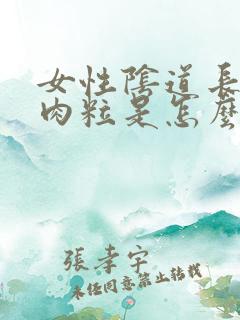 女性陰道長
肉粒是怎麼
張孝宇
未經同意禁止轉載